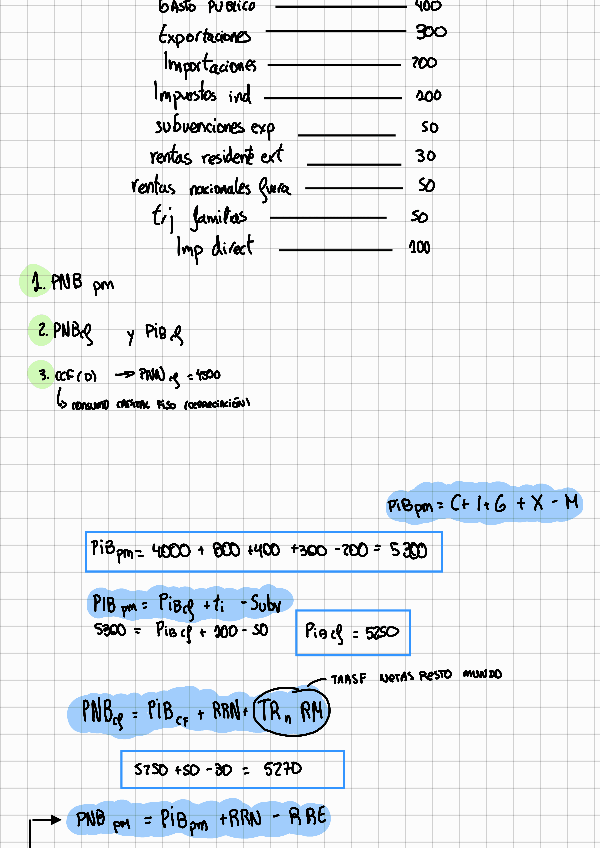 Gasto Publico 400
Exportaciones 300
Importaciones 200
Impuestos ind 100
subvenciones exp 50
rentas resident ext 30
rentas nacionales fuera 50
trj familias 50
Imp direct 100
1. PNB pm
2. PNBcf y PiBcf
3. CCF(D) → PNNcf = 4800
↳ CONSUMO CAPITAL FISO (DEPRECIACIÓN)
PiBpm = C + I + G + X - M
PiBpm = 4000 + 800 + 400 + 300 - 200 = 5300
PIBpm = PiBcf + ti - Subv
5300 = PiBcf + 100 - 50 PiBcf = 5250
TRASF NETAS RESTO MUNDO
PNBcf = PiBCF + RRN + TRn RM
5250 + 50 - 30 = 5270
PNBPM = PiBpm + RRN - RRE